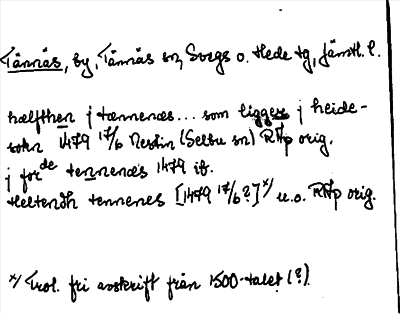 Tännäs, by, Tännäs sn, Svegs o. Hede tg, Jämtl. l.
hælfthen j tænnenæs... som liggess j heide-
sokn 1479 17/6 Nestin (Selbu sn) RAp orig.
j for de tennenæs 1479 ib.
Heltendh tennenes [1479 17/6?] x/ u.o. RAp orig.
x/ Trol. fri avskrift från 1500-talet (?).